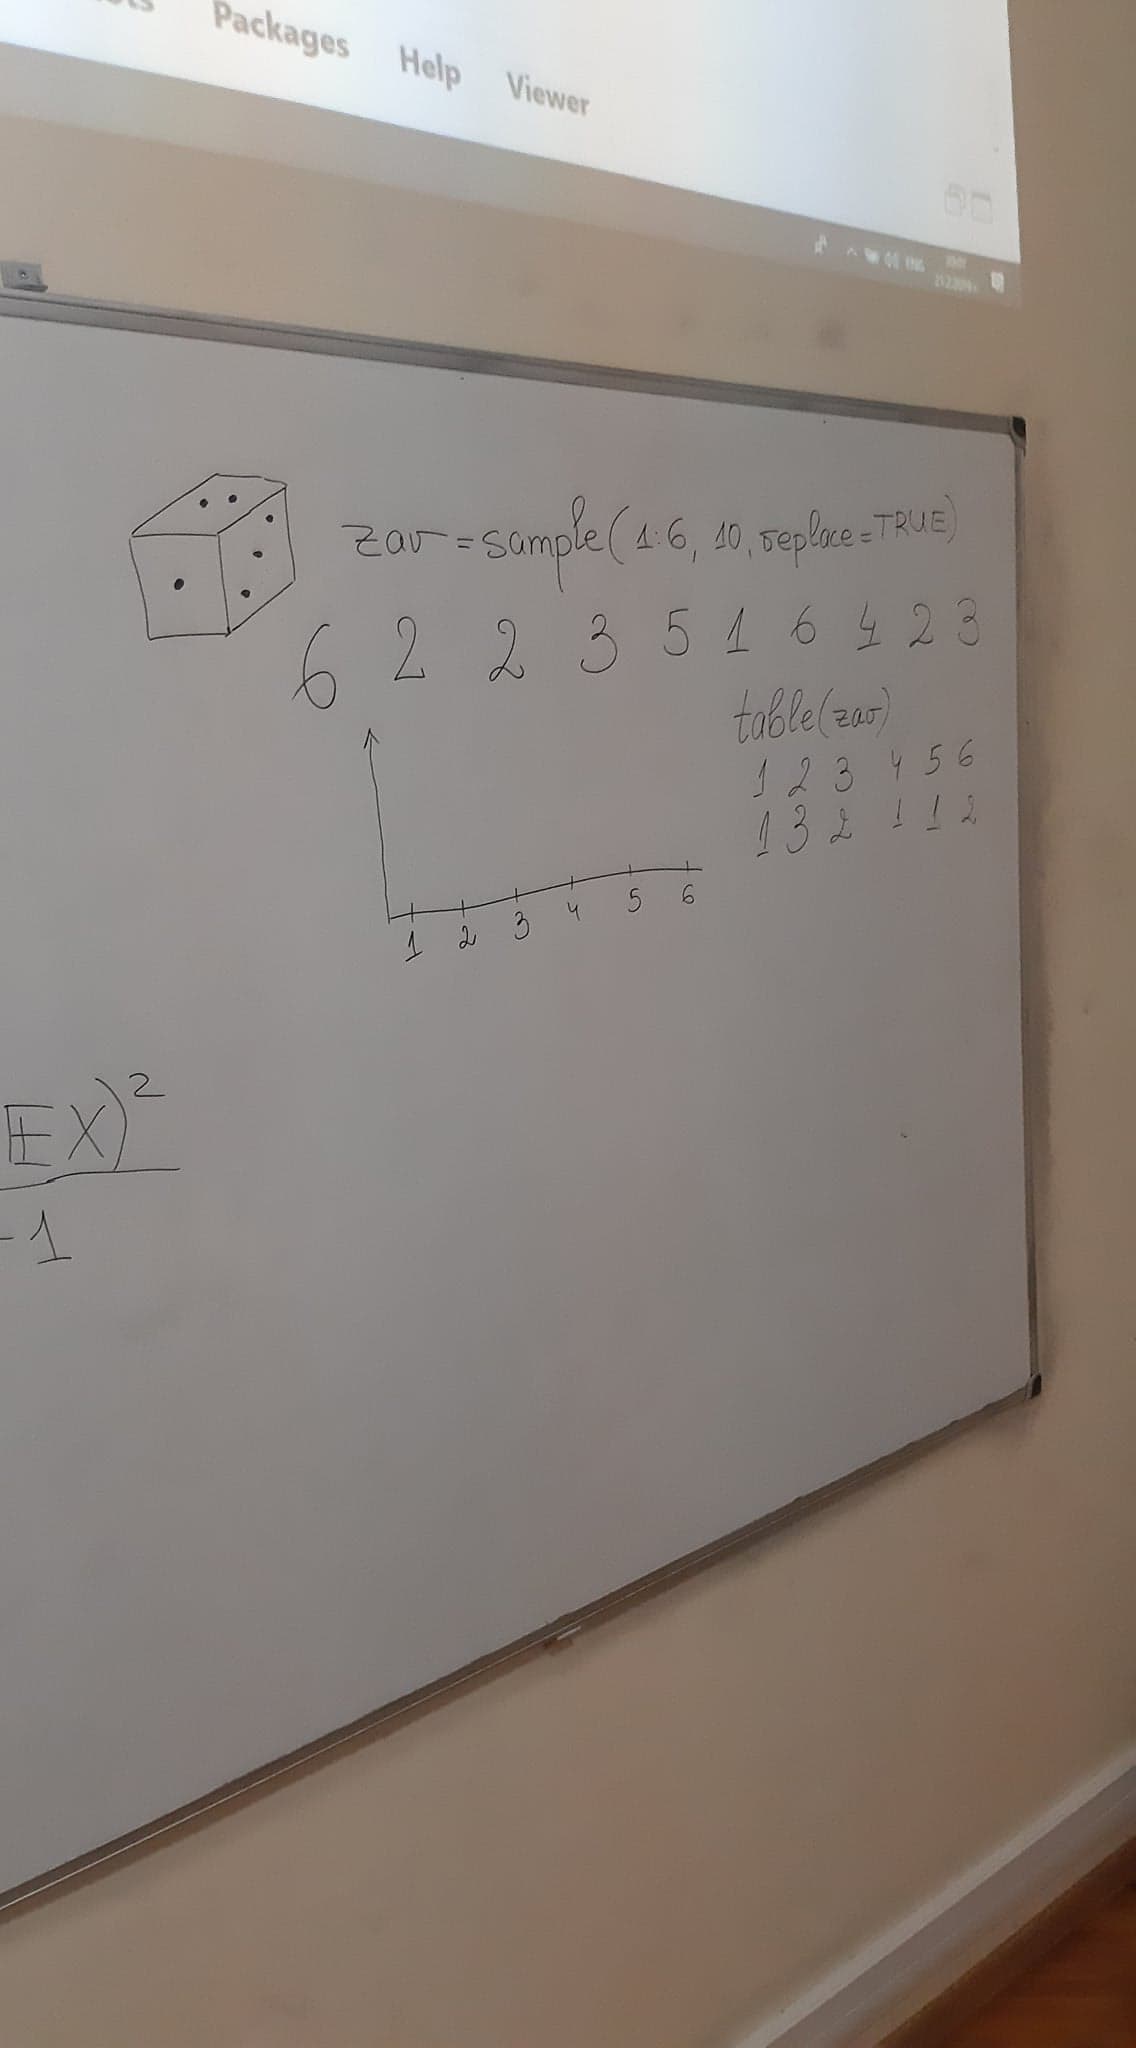 Packages Help Viewer
ENG
zar = sample(1:6, 10, replace = TRUE)
6 2 2 3 5 1 6 4 2 3
table(zar)
1 2 3 4 5 6
1 3 2 1 1 2
1 2 3 4 5 6
EX)²
-1